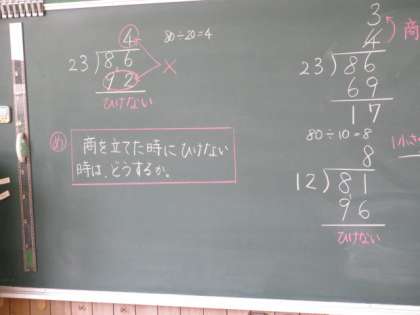 4
80÷20=4
23)86
92
×
ひけない
め
商を立てた時にひけない
時は、どうするか。
3
4
商
23)86
69
17
80÷10=8
1小さ
8
12)81
96
ひけない